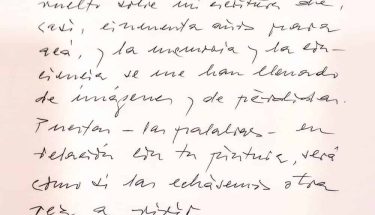 vuelto sobre mi escritura de,
casi, cincuenta años para
acá, y la memoria y la con-
ciencia se me han llenado
de imágenes y de pérdidas.
Puestas – las palabras – en
relación con tu pintura, será
como si las echásemos otra
vez a vivir.